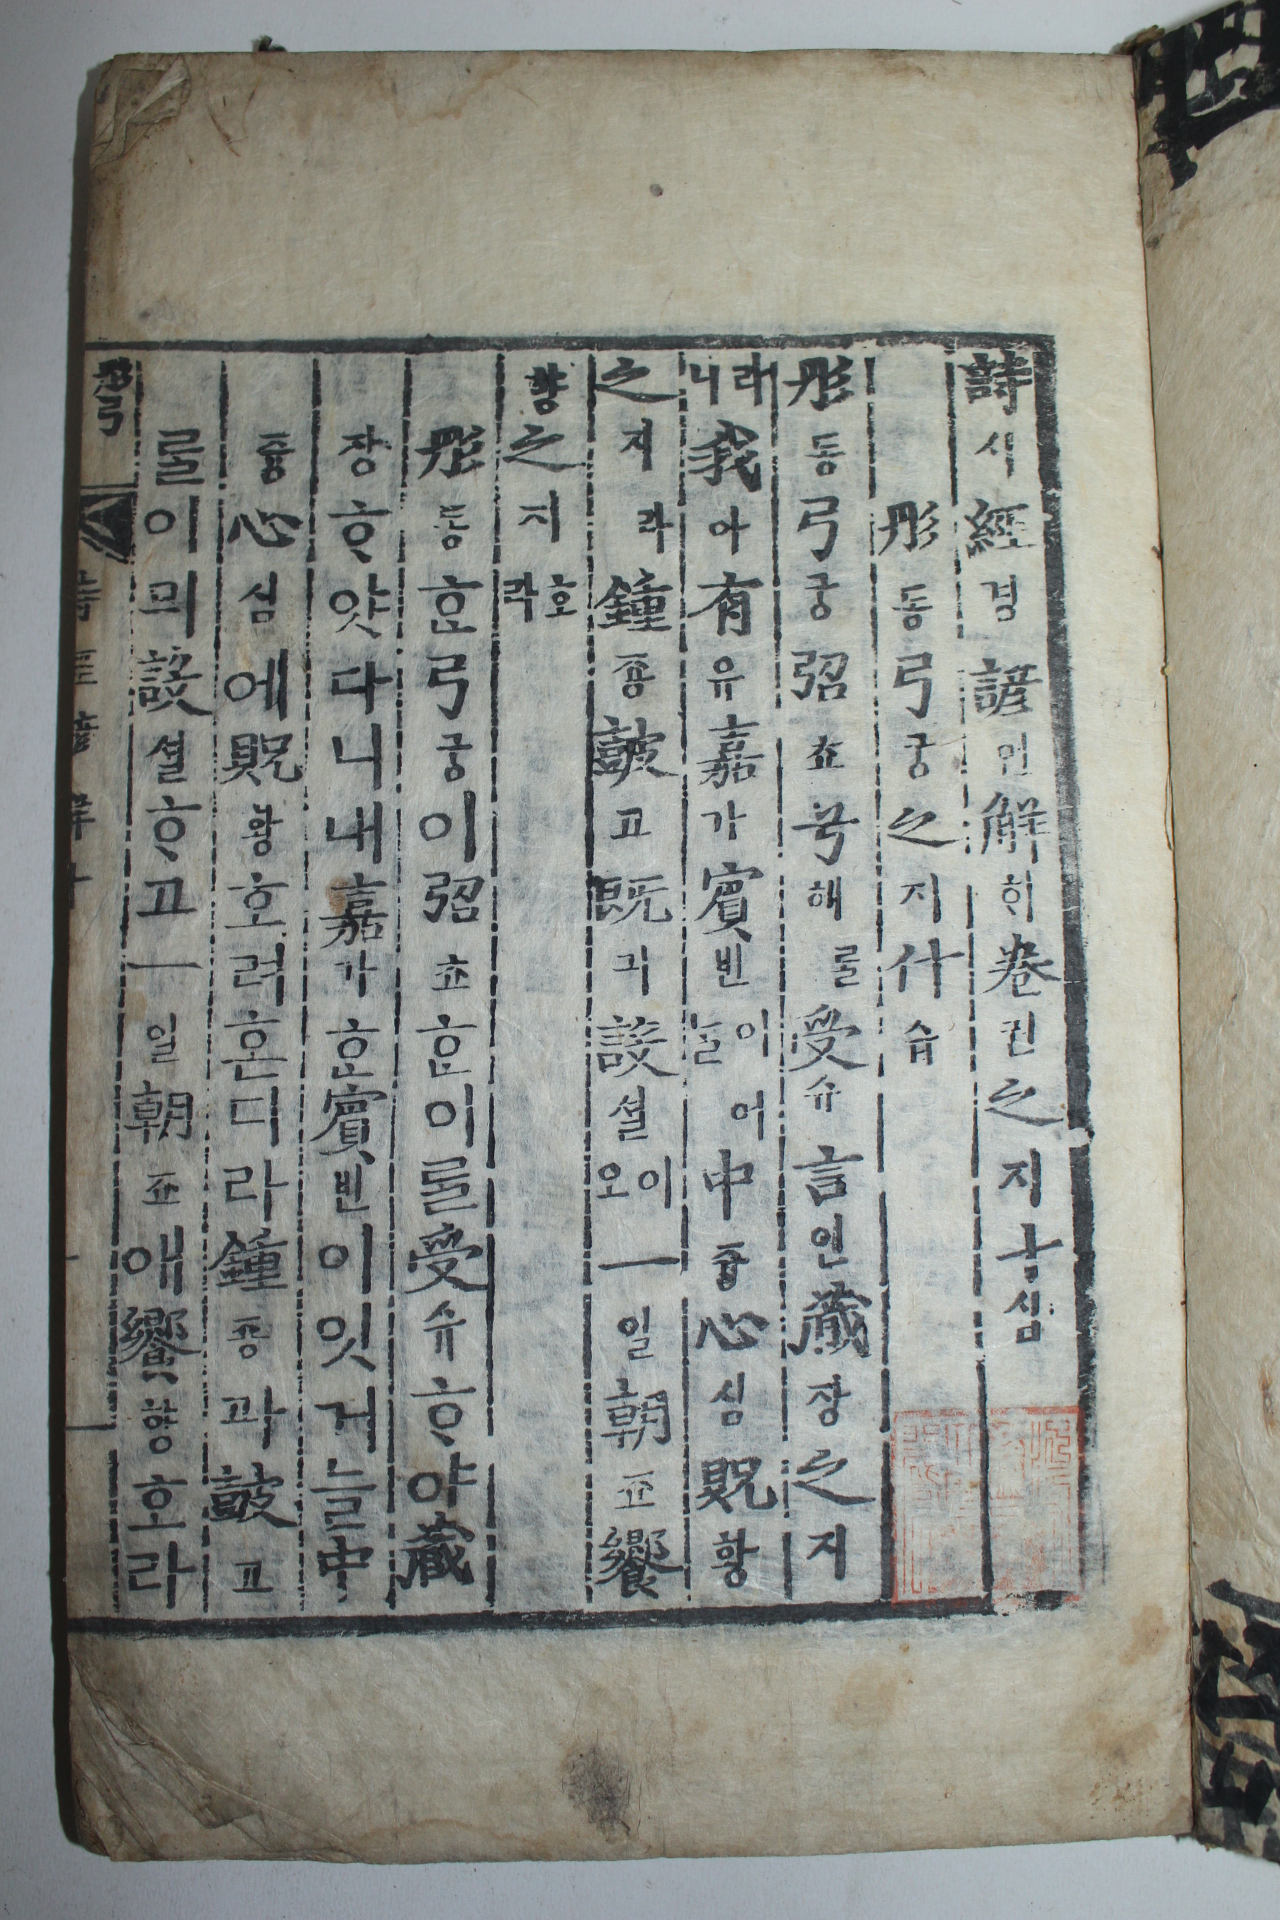 詩시經경諺언解ᄒᆡ卷권之지十십
彤동弓궁之지什습
彤동弓궁弨쵸兮혜를受슈言언藏장之지
라니我아有유嘉가賓빈이어늘中듕心심貺황
之지라鐘죵鼓고旣긔設셜이오一일朝죠饗
향之지호라
彤동ᄒᆞᆫ弓궁이弨쵸ᄒᆞᆫ이를受슈ᄒᆞ야藏
장ᄒᆞ얏다니내嘉가ᄒᆞᆫ賓빈이잇거늘中
듕心심에貺황호려ᄒᆞᆫ디라鐘죵과鼓고
를이믜設셜ᄒᆞ고一일朝죠애饗향호라
彤弓
詩經諺解十